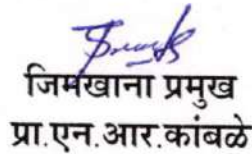 जिमखाना प्रमुख
प्रा.एन.आर.कांबळे